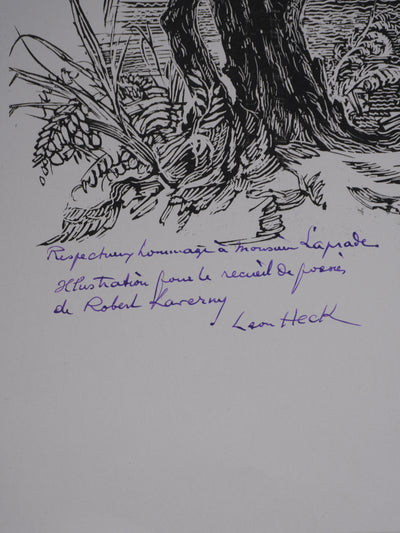 Respectueux hommage à Monsieur Laprade
Illustration pour le recueil de poésies
de Robert Kaverny
Leon Heck